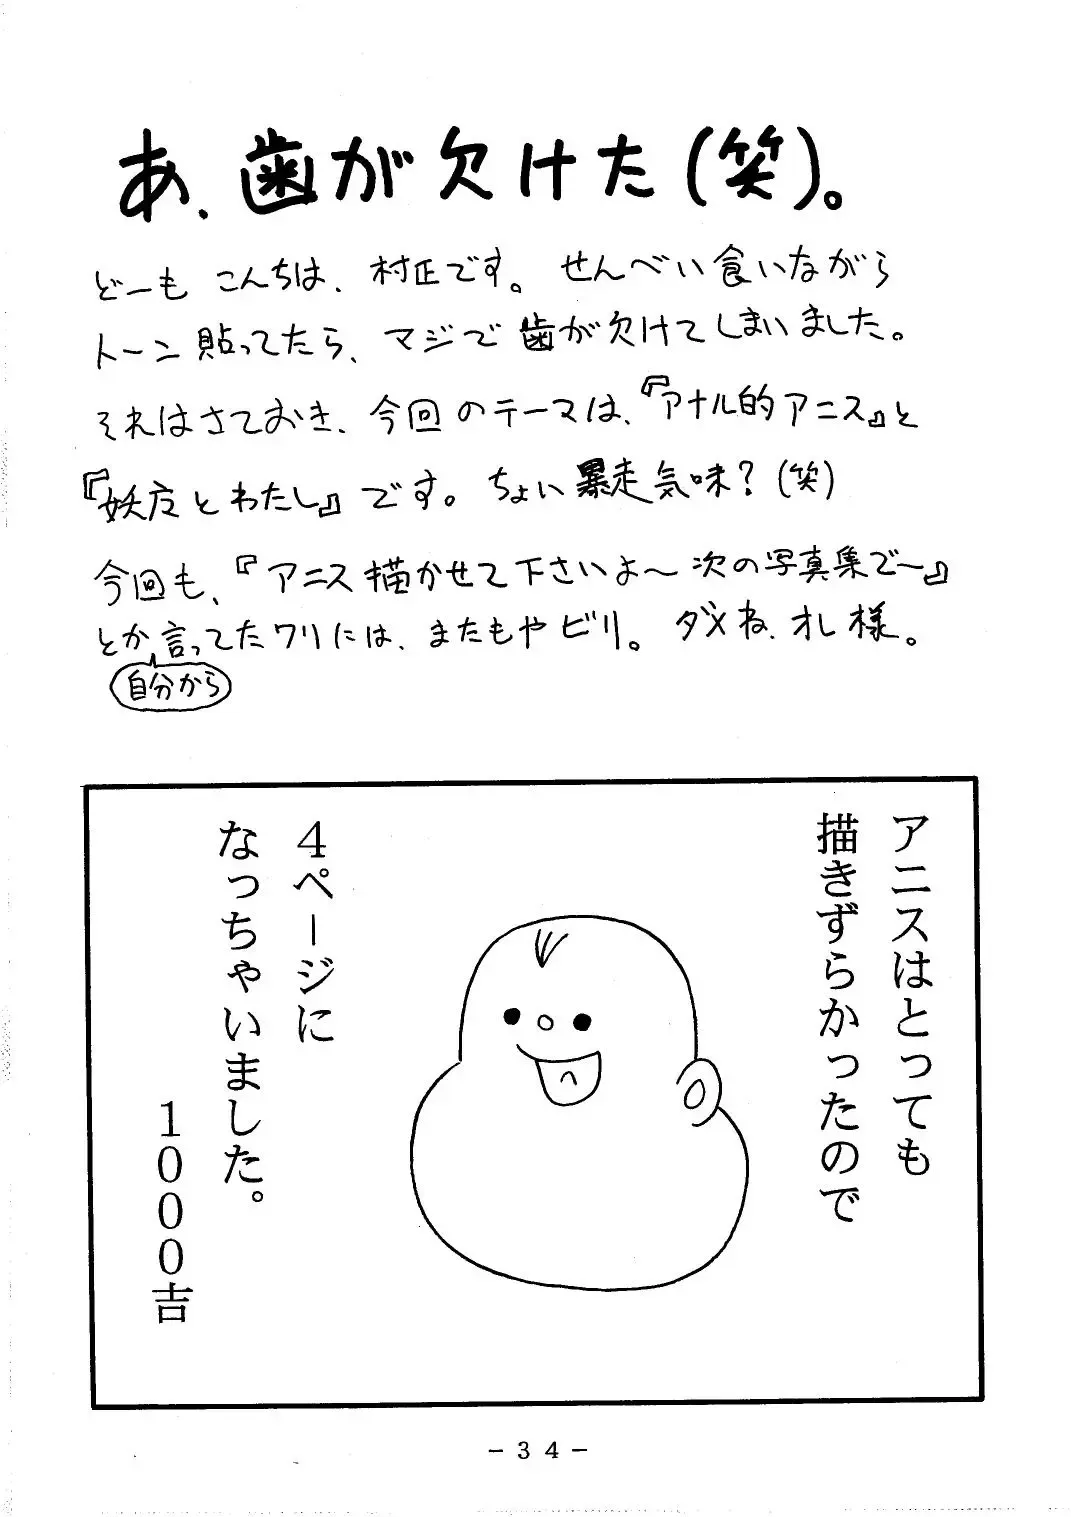 あ、歯が欠けた(笑)。
どーも こんちは、村正です。せんべい食いながら
トーン貼ってたら、マジで歯が欠けてしまいました。
それはさておき、今回のテーマは、『アナル的アニス』と
『妖皮とわたし』です。ちょい暴走気味?(笑)
今回も、『アニス描かせて下さいよ〜次の写真集で〜』
とか言ってたワリには、またもやビリ。ダメね、オレ様。
自分から
アニスはとっても
描きずらかったので
4ページに
なっちゃいました。
1000吉
－34－